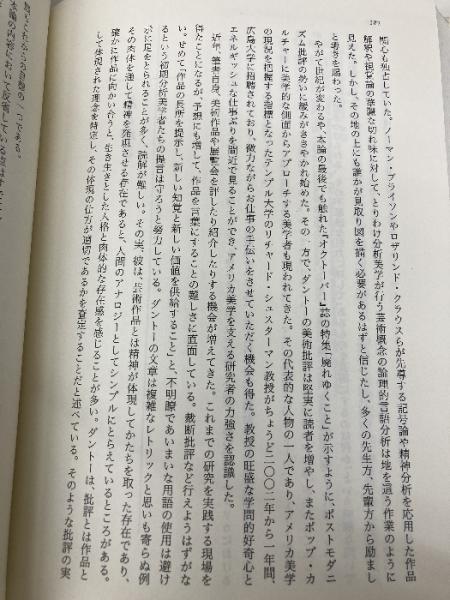 189
関心も独占していた、ノーマン・ブライソンやロザリンド・クラウスらが先導する記号論や精神分析を応用した作品
解釈や視覚論の華麗な切れ味に対して、とりわけ分析美学が行う芸術概念の論理的言語分析は地を這う作業のように
見えた。しかし、その地の上にも誰かが見取り図を描く必要があるはずと信じたし、多くの先生方、先輩方から励まし
と導きを賜わった。
やがて世紀が変わるや、本論の最後でも触れた『オクトーバー』誌の特集「廃れゆくこと」が示すように、ポストモダニ
ズム批評の勢いに翳りがさやかれ始めた。その一方で、ダントーの美術批評は堅実に読者を増やし、またポップ・カ
ルチャーに美学的な側面からアプローチする美学者も現われてきた。その代表的な人物の一人であり、アメリカ美学
の現況を把握する指標となったテンプル大学のリチャード・シュスターマン教授がちょうど二〇〇二年から一年間、
広島大学に招聘されており、微力ながらお仕事の手伝いをさせていただく機会も得た。教授の旺盛な学問的好奇心と
エネルギッシュな仕事ぶりを間近で見ることができ、アメリカ美学を支える研究者の力強さを認識した。
近年、筆者自身、美術作品や展覧会を評したり紹介したりする機会が増えてきた。これまでの研究を実践する現場を
得たことになるが、予想にも増して、作品を言葉にすることの難しさに直面している。裁断批評など行えようはずがな
い。せめて、「作品の長所を提示し、新しい知覚と新しい価値を供給すること」と、「不明瞭であいまいな用語の使用は避け
る」という初期分析美学者たちの提言は守ろうと努力している。ダントーの文章は複雑なレトリックと思いも寄らぬ例
に足をとられることが多く、読解が難しい。その実、彼は、芸術作品とは精神が体現してかたちを取った存在であり、
その肉体を通して精神を発現させる存在であると、人間のアナロジーとしてシンプルにとらえているところがある。
確かに作品に向かい合うと、生き生きとした人格と肉体的な存在感を感じることが多い。ダントーは、批評とは作品と
して体現された理念を特定し、その体現の仕方が適切であるかを査定することだと述べている。そのような批評の実